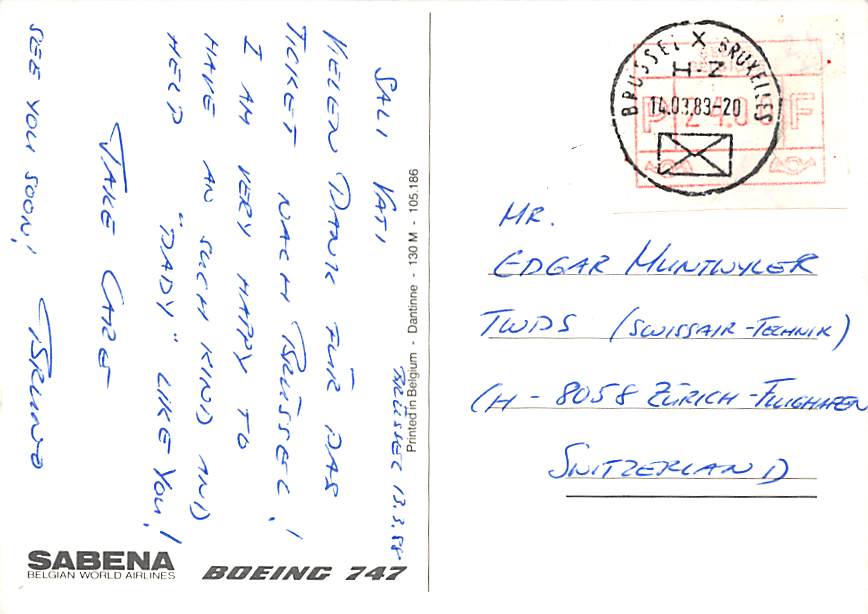 BRÜSSEL 13.3.88
SALI VATI
VIELEN DANK FÜR DAS
TICKET NACH BRÜSSEL!
I AM VERY HAPPY TO
HAVE AN SUCH KIND AND
HELP "DADY" LIKE YOU!
TAKE CARE
SEE YOU SOON! BRUNO
Printed in Belgium - Dantinne - 130 M - 105.186
SABENA
BELGIAN WORLD AIRLINES
BOEING 747
BRUSSEL X BRUXELLES
H-Z
14.03.83-20
P 24.00 F
MR.
EDGAR MUNTWYLER
TWDS (SWISSAIR-TECHNIK)
CH-8058 ZÜRICH-FLUGHAFEN
SWITZERLAND